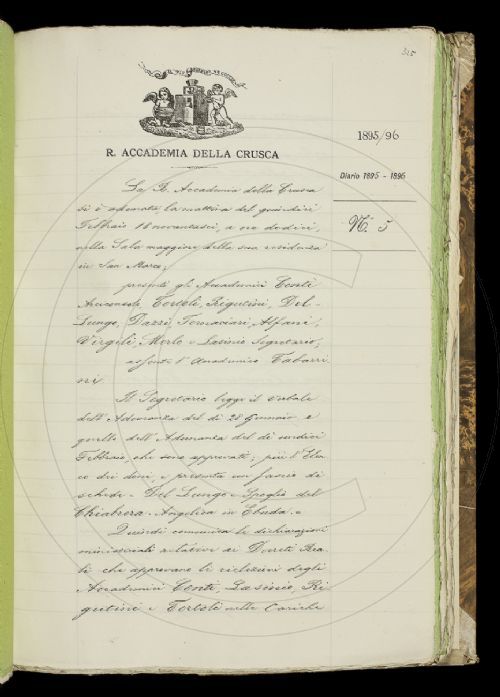 325
IL PIÙ BEL FIOR NE COGLIE
R. ACCADEMIA DELLA CRUSCA
1895/96
Diario 1895 - 1896
N.° 5
La R. Accademia della Crusca
si è adunata la mattina del quindici
Febbraio 18novantasei, a ore dodici,
nella Sala maggiore della sua residenza
in San Marco;
presenti gli Accademici Conti
Arciconsolo, Tortoli, Rigutini, Del-
Lungo, Dazzi, Tommasini, Alfani,
Virgili, Merlo e Lasinio Segretario;
assente l'Accademico Tabarri
ni.
Il Segretario legge il verbale
dell'Adunanza del dì 28 Gennaio e
quello dell'Adunanza del dì undici
Febbraio, che sono approvati; più l'Elen
co dei doni, e presenta un fascio di
schede - Del Lungo - Spoglio del
Chiabrera - Angelica in Ebuda. =
Quindi comunica le dichiarazioni
ministeriali relative ai Decreti Rea
li che approvano le rielezioni degli
Accademici Conti, Lasinio, Ri
gutini e Tortoli nelle Cariche